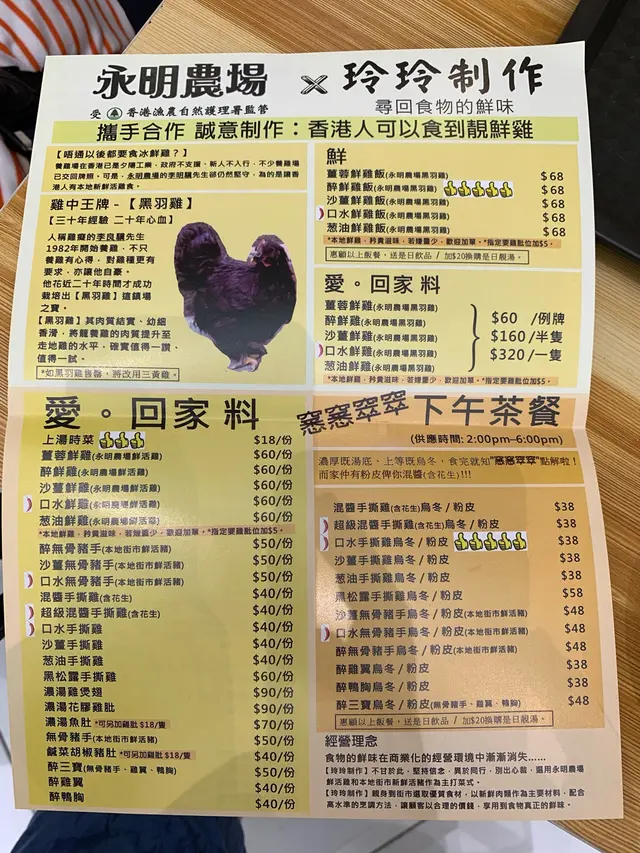 永明農場 × 玲玲制作
受 香港漁農自然護理署監管
尋回食物的鮮味
攜手合作 誠意制作：香港人可以食到靚鮮雞
【唔通以後都要食冰鮮雞？】
養雞場在香港已是夕陽工業，政府不支援、新人不入行，不少養雞場
已交回牌照。可是，永明農場的李明驥先生卻仍然堅守，為的是讓香
港人有本地新鮮活雞食。
雞中王牌-【黑羽雞】
【三十年經驗 二十年心血】
人稱雞癡的李良驥先生
1982年開始養雞，不只
養雞有心得，對雞種更有
要求，亦讓他自豪。
他花近二十年時間才成功
栽培出【黑羽雞】這鎮場
之寶。
【黑羽雞】其肉質結實、幼細
香滑，將籠養雞的肉質提升至
走地雞的水平，確實值得一讚、
值得一試。
*如黑羽雞售罄，將改用三黃雞。
鮮
薑蓉鮮雞飯(永明農場黑羽雞) $68
醉鮮雞飯(永明農場黑羽雞) $68
沙薑鮮雞飯(永明農場黑羽雞) $68
口水鮮雞飯(永明農場黑羽雞) $68
葱油鮮雞飯(永明農場黑羽雞) $68
*本地鮮雞，矜貴滋味，若嫌量少，歡迎加單。*指定要雞髀位加$5。
惠顧以上飯餐，送是日飲品 / 加$20換購是日靚湯。
愛。回家料
薑蓉鮮雞(永明農場黑羽雞)
醉鮮雞(永明農場黑羽雞)
沙薑鮮雞(永明農場黑羽雞)
口水鮮雞(永明農場黑羽雞)
葱油鮮雞(永明農場黑羽雞)
$60 /例牌
$160 /半隻
$320 /一隻
*本地鮮雞，矜貴滋味，若嫌量少，歡迎加單。*指定要雞髀位加$5。
愛。回家料
上湯時菜 $18/份
薑蓉鮮雞(永明農場鮮活雞) $60/份
醉鮮雞(永明農場鮮活雞) $60/份
沙薑鮮雞(永明農場鮮活雞) $60/份
口水鮮雞(永明農場鮮活雞) $60/份
葱油鮮雞(永明農場鮮活雞) $60/份
*本地鮮雞，矜貴滋味，若嫌量少，歡迎加單。*指定要雞髀位加$5。
醉無骨豬手(本地街市鮮活豬) $50/份
沙薑無骨豬手(本地街市鮮活豬) $50/份
口水無骨豬手(本地街市鮮活豬) $50/份
混醬手撕雞(含花生) $40/份
超級混醬手撕雞(含花生) $40/份
口水手撕雞 $40/份
沙薑手撕雞 $40/份
葱油手撕雞 $40/份
黑松露手撕雞 $60/份
濃湯雞煲翅 $90/份
濃湯花膠雞肚 $90/份
濃湯魚肚 *可另加雞肚 $18/隻 $70/份
無骨豬手(本地街市鮮活豬) $50/份
鹹菜胡椒豬肚 *可另加雞肚 $18/隻 $40/份
醉三寶(無骨豬手、雞翼、鴨胸) $50/份
醉雞翼 $40/份
醉鴨胸 $40/份
窸窸窣窣下午茶餐
(供應時間: 2:00pm–6:00pm)
濃厚既湯底、上等既烏冬，食完就知"窸窸窣窣"點解啦！
而家仲有粉皮俾你混醬(含花生)!!!
混醬手撕雞(含花生)烏冬 / 粉皮 $38
超級混醬手撕雞(含花生)烏冬 / 粉皮 $38
口水手撕雞烏冬 / 粉皮 $38
沙薑手撕雞烏冬 / 粉皮 $38
葱油手撕雞烏冬 / 粉皮 $38
黑松露手撕雞烏冬 / 粉皮 $58
沙薑無骨豬手烏冬 / 粉皮(本地街市鮮活豬) $48
口水無骨豬手烏冬 / 粉皮(本地街市鮮活豬) $48
醉無骨豬手烏冬 / 粉皮(本地街市鮮活豬) $48
醉雞翼烏冬 / 粉皮 $38
醉鴨胸烏冬 / 粉皮 $38
醉三寶烏冬 / 粉皮(無骨豬手、雞翼、鴨胸) $48
惠顧以上飯餐，送是日飲品 / 加$20換購是日靚湯。
經營理念
食物的鮮味在商業化的經營環境中漸漸消失......
【玲玲制作】不甘於此，堅持信念，異於同行，別出心裁，選用永明農場
鮮活雞和本地街市新鮮活豬作為主打菜式。
【玲玲制作】親身到街市選取優質食材，以新鮮肉類作為主要材料，配合
高水準的烹調方法，讓顧客以合理的價錢，享用到食物真正的鮮味。